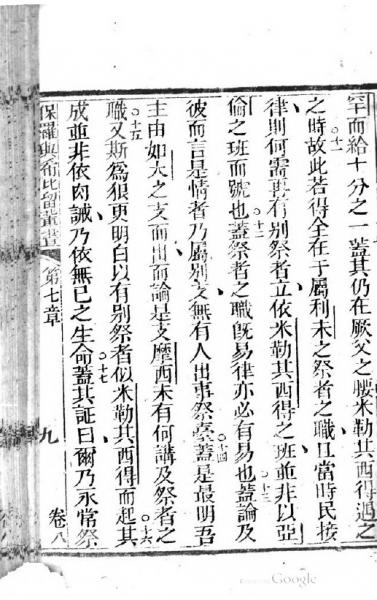 罕而給十分之一蓋其仍在厥父之腰米勒其西得遇之
之時○十一故此若得全在于屬利未之祭者之職且當時民接
律則何需再有別祭者立依米勒其西得之班並非以亞
倫之班而號也○十二蓋祭者之職既易律亦必有易也○十三蓋論及
彼而言是情者乃屬別支無有人出事祭臺○十四蓋是最明吾
主由如大之支而出而論是支摩西未有何講及祭者之
職○十五又斯為狠更明白以有別祭者似米勒其西得而起○十六其
成並非依肉誡乃依無已之生命○十七蓋其証曰爾乃永常祭
保羅與希比留輩書 第七章 九 卷八
Google